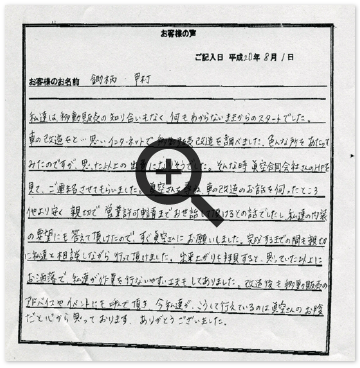 お客様の声
ご記入日 平成20年8月1日
お客様のお名前 鄕柄 甲村
私達は移動販売の知り合いもなく 何もわからないままからのスタートでした。
車の改造をと…思いインターネットで移動販売改造を調べました。色んな所をあたって
みたのですが、思った以上の出来に そうでした。そんな時 真空合同会社さんのHPを
見て、ご連絡させてもらいました。真空さん 車の改造のお話を伺ったところ
他より安く 親切で 営業許可制度までお世話 頂けるとの話でしたし 私達の内装
の要望にも答えて頂けたので、すぐ真空さんにお願いしました。完成するまでの間も親切
に私達と相談しながら行って頂けました。出来上がりを拝見すると、思っていた以上に
お洒落で、私達が作業を行ないやすい工夫をしてありました。改造後も移動販売の
アドバイスやイベントにも呼んで頂き、今私達が、こうして行えているのは真空さんのお陰
だと心から思っております。ありがとうございました。